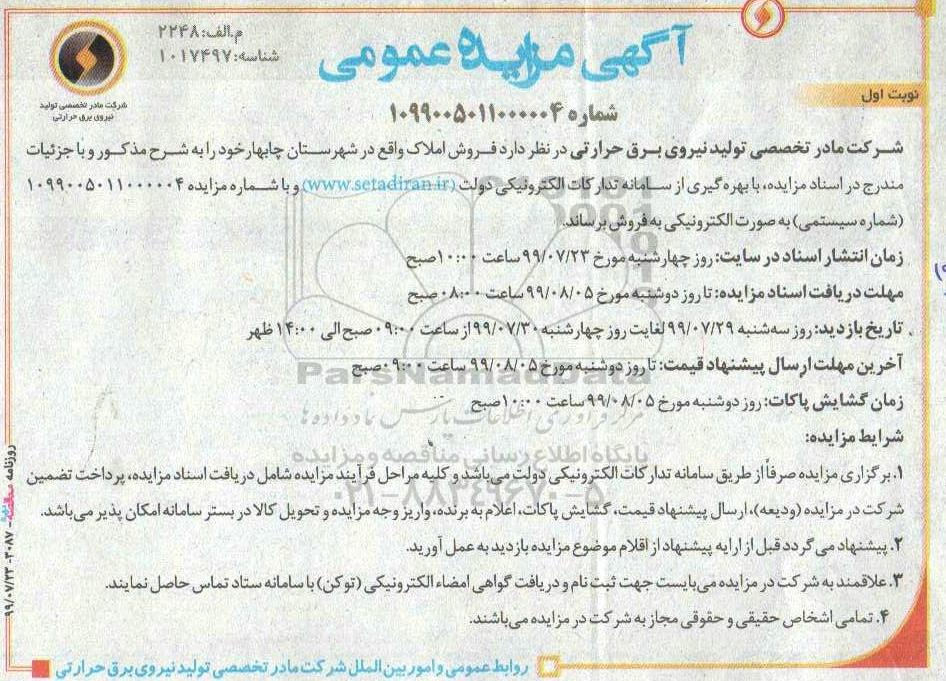 م.الف: ۲۲۴۸
شناسه: ۱۰۱۷۴۹۷
آگهی مزایده عمومی
شرکت مادر تخصصی تولید
نیروی برق حرارتی
نوبت اول
شماره ۱۰۹۹۰۰۵۰۱۱۰۰۰۰۰۴
شرکت مادر تخصصی تولید نیروی برق حرارتی در نظر دارد فروش املاک واقع در شهرستان چابهار خود را به شرح مذکور و با جزئیات
مندرج در اسناد مزایده، با بهره گیری از سامانه تدارکات الکترونیکی دولت (www.setadiran.ir) و با شماره مزایده ۱۰۹۹۰۰۵۰۱۱۰۰۰۰۰۴
(شماره سیستمی) به صورت الکترونیکی به فروش برساند.
زمان انتشار اسناد در سایت: روز چهارشنبه مورخ ۹۹/۰۷/۲۳ ساعت ۱۰:۰۰ صبح
مهلت دریافت اسناد مزایده: تا روز دوشنبه مورخ ۹۹/۰۸/۰۵ ساعت ۰۸:۰۰ صبح
تاریخ بازدید: روز سه‌شنبه ۹۹/۰۷/۲۹ لغایت روز چهارشنبه ۹۹/۰۷/۳۰ از ساعت ۰۹:۰۰ صبح الی ۱۴:۰۰ ظهر
آخرین مهلت ارسال پیشنهاد قیمت: تا روز دوشنبه مورخ ۹۹/۰۸/۰۵ ساعت ۰۹:۰۰ صبح
ParsNamadData
زمان گشایش پاکات: روز دوشنبه مورخ ۹۹/۰۸/۰۵ ساعت ۱۰:۰۰ صبح
مرکز فرآوری اطلاعات پارس نماد داده ها
شرایط مزایده:
پایگاه اطلاع رسانی مناقصه و مزایده
۱. برگزاری مزایده صرفاً از طریق سامانه تدارکات الکترونیکی دولت می‌باشد و کلیه مراحل فرآیند مزایده شامل دریافت اسناد مزایده، پرداخت تضمین
۰۲۱-۸۸۳۴۹۶۷۰-۵
شرکت در مزایده (ودیعه)، ارسال پیشنهاد قیمت، گشایش پاکات، اعلام به برنده، واریز وجه مزایده و تحویل کالا در بستر سامانه امکان پذیر می‌باشد.
۲. پیشنهاد می گردد قبل از ارایه پیشنهاد از اقلام موضوع مزایده بازدید به عمل آورید.
۳. علاقمند به شرکت در مزایده می‌بایست جهت ثبت نام و دریافت گواهی امضاء الکترونیکی (توکن) با سامانه ستاد تماس حاصل نمایند.
۴. تمامی اشخاص حقیقی و حقوقی مجاز به شرکت در مزایده می‌باشند.
روابط عمومی و امور بین الملل شرکت مادر تخصصی تولید نیروی برق حرارتی
روزنامه
۳۰۸۷- ۹۹/۰۷/۲۳